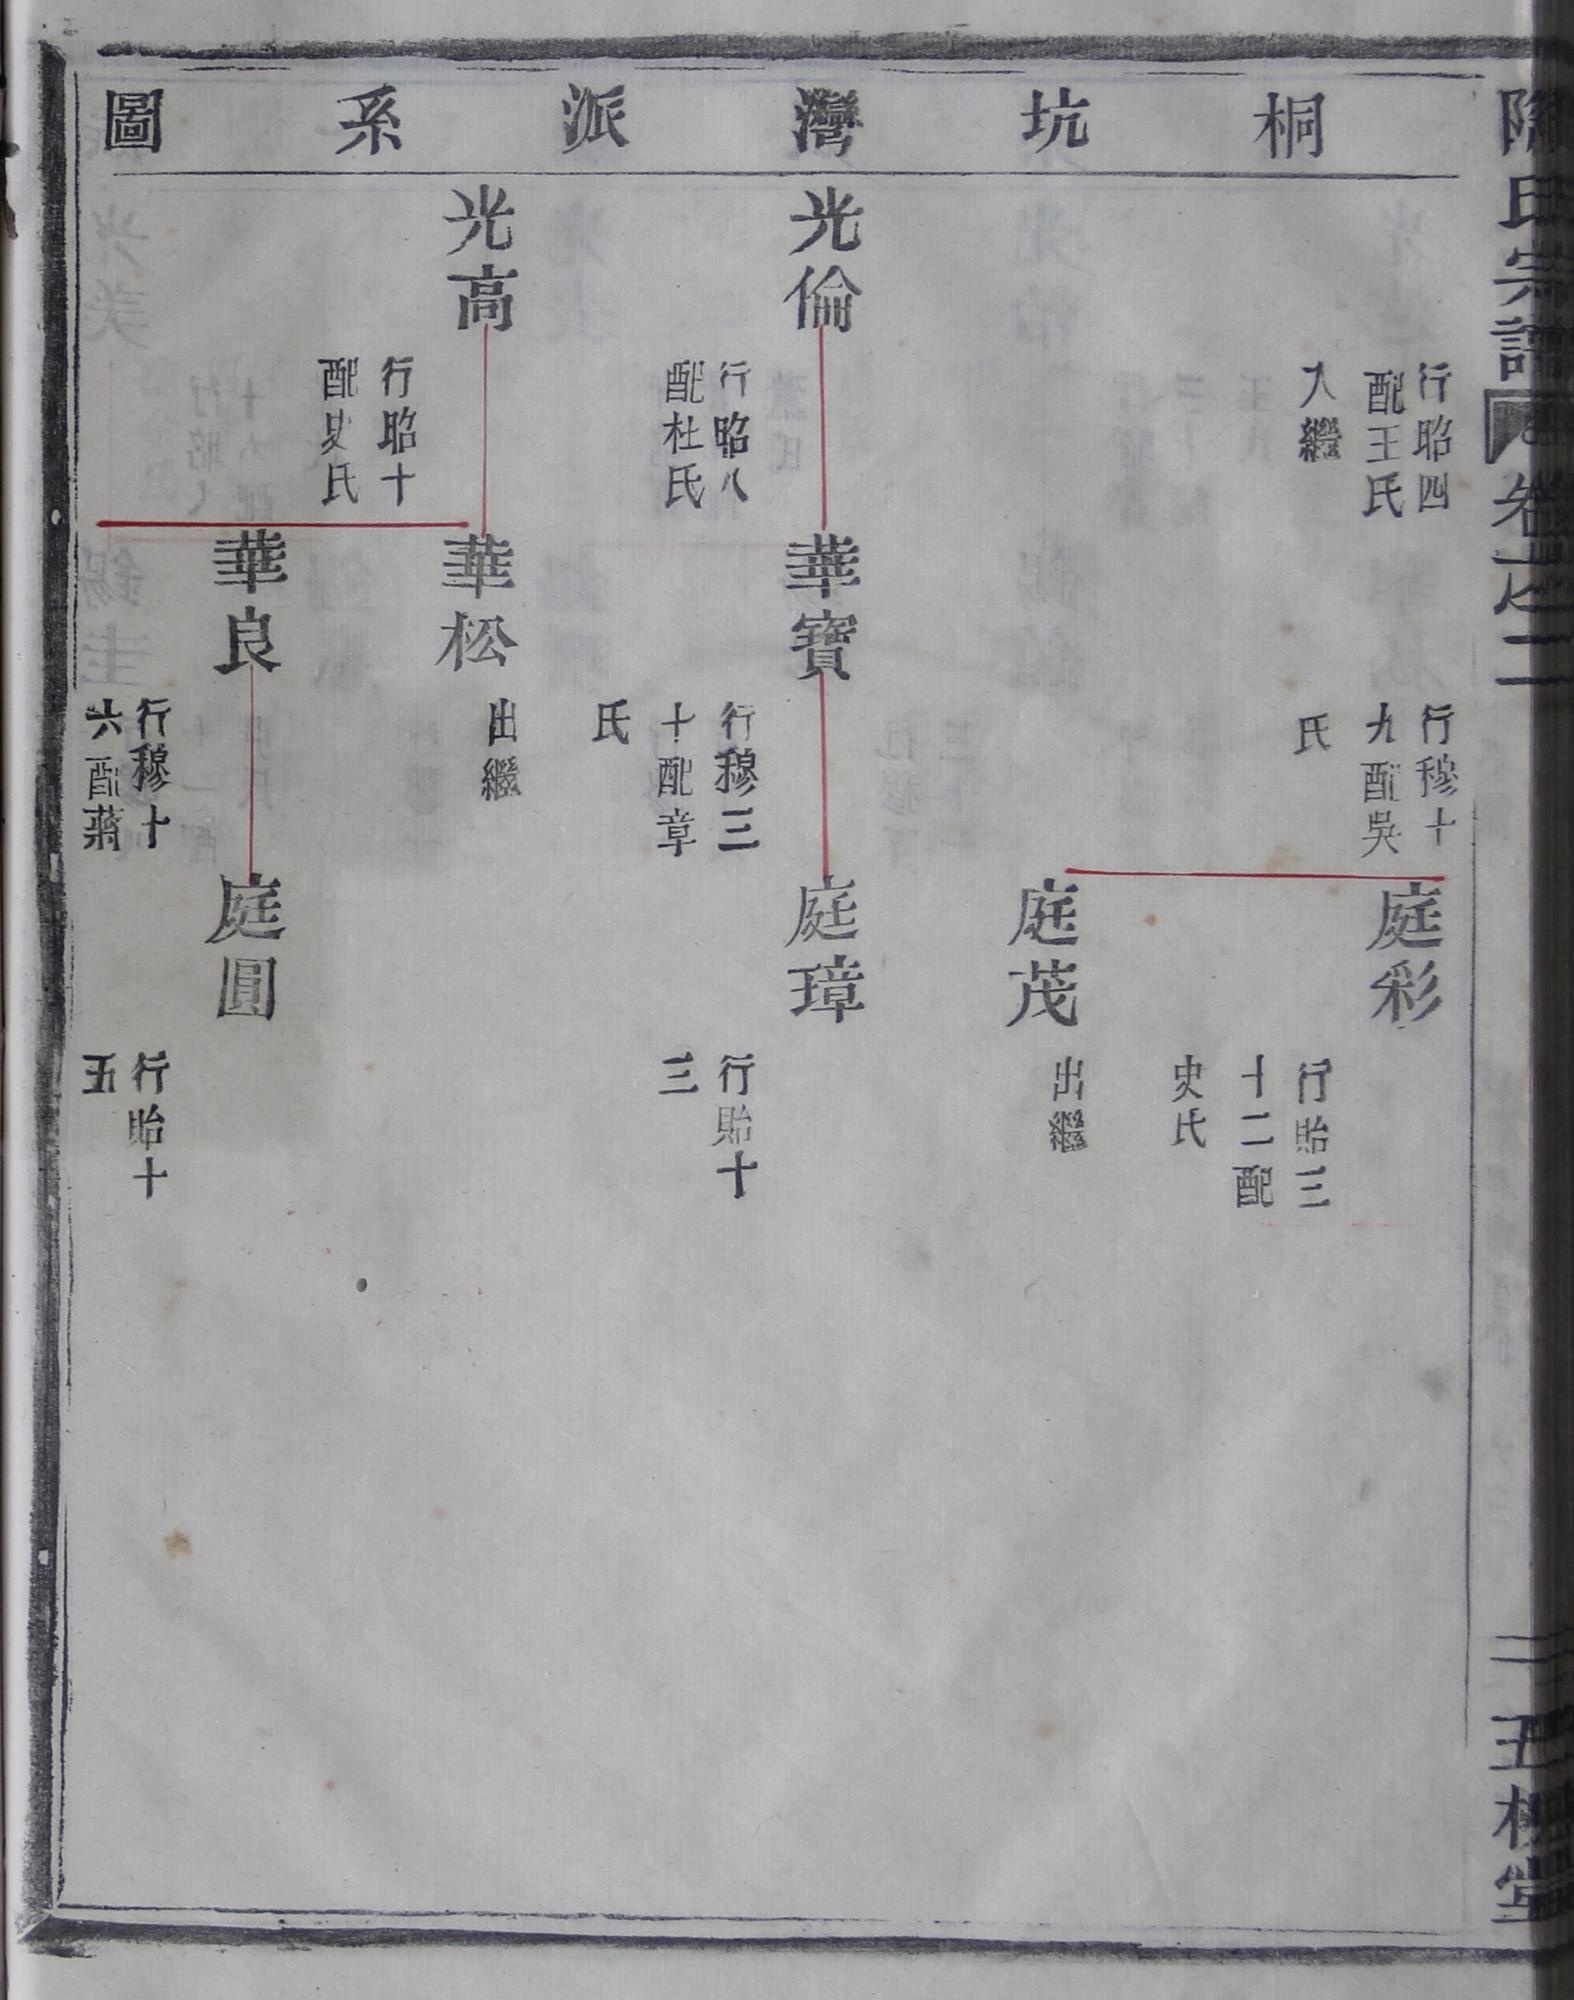 桐坑灣派系圖
氏宗譜
卷之二
堂
行昭四
配王氏
入繼
光倫
行昭八
配杜氏
光高
行昭十
配史氏
行穆十
九配吳
氏
華寶
行穆三
十配章
氏
華松
出繼
華良
行穆十
六配蔣
庭彩
行貽三
十二配
史氏
庭茂
出繼
庭璋
行貽十
三
庭圓
行貽十
五